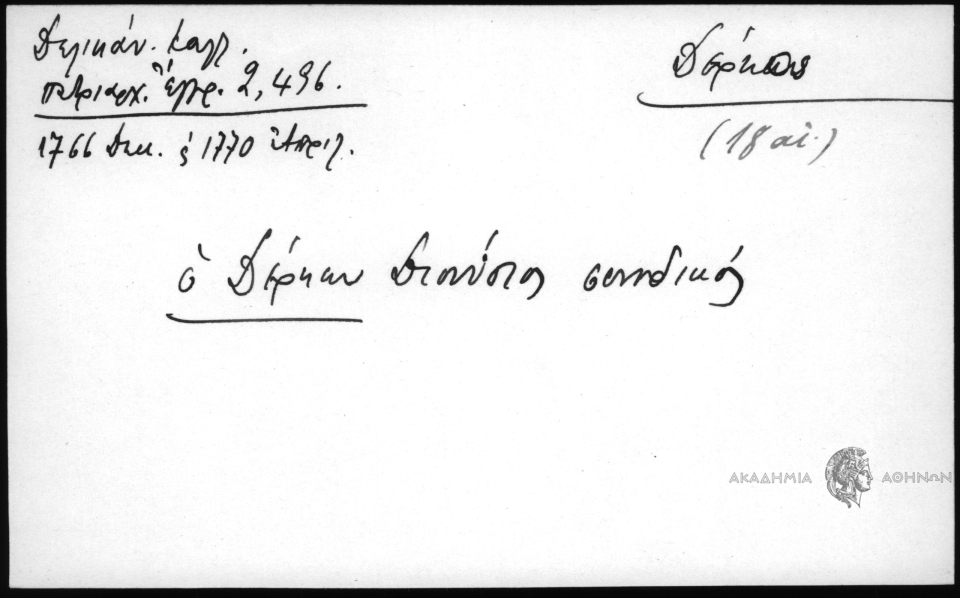 Δελικάν. Καλλ.
πατριαρχ. ἔγγρ. 2, 496.
1766 Δεκ. ἕ 1770 Ἀπριλ.
Δέρκος
(18 αἰ.)
ὁ Δέρκων Διονύσιος συνοδικός
ΑΚΑΔΗΜΙΑ ΑΘΗΝΩΝ